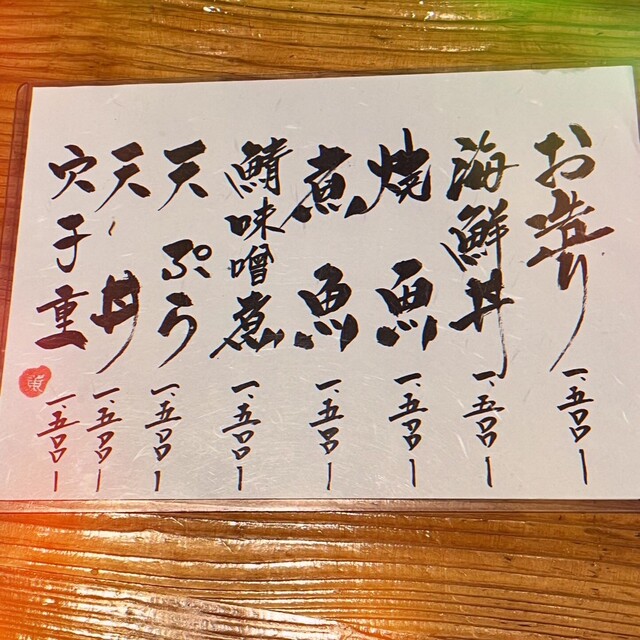 お造り 一、五〇〇ー
海鮮丼 一、五〇〇ー
焼魚 一、五〇〇ー
煮魚 一、五〇〇ー
鯖味噌煮 一、五〇〇ー
天ぷら 一、五〇〇ー
天丼 一、五〇〇ー
穴子重 一、五〇〇ー